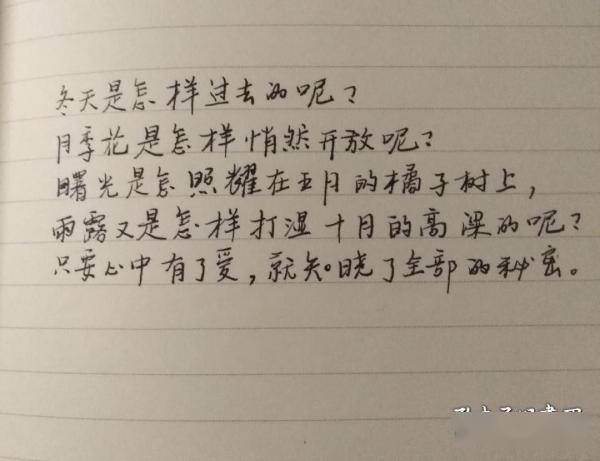 冬天是怎样过去的呢？
月季花是怎样悄然开放呢？
曙光是怎照耀在五月的橘子树上，
雨露又是怎样打湿十月的高粱的呢？
只要心中有了爱，就知晓了全部的秘密。